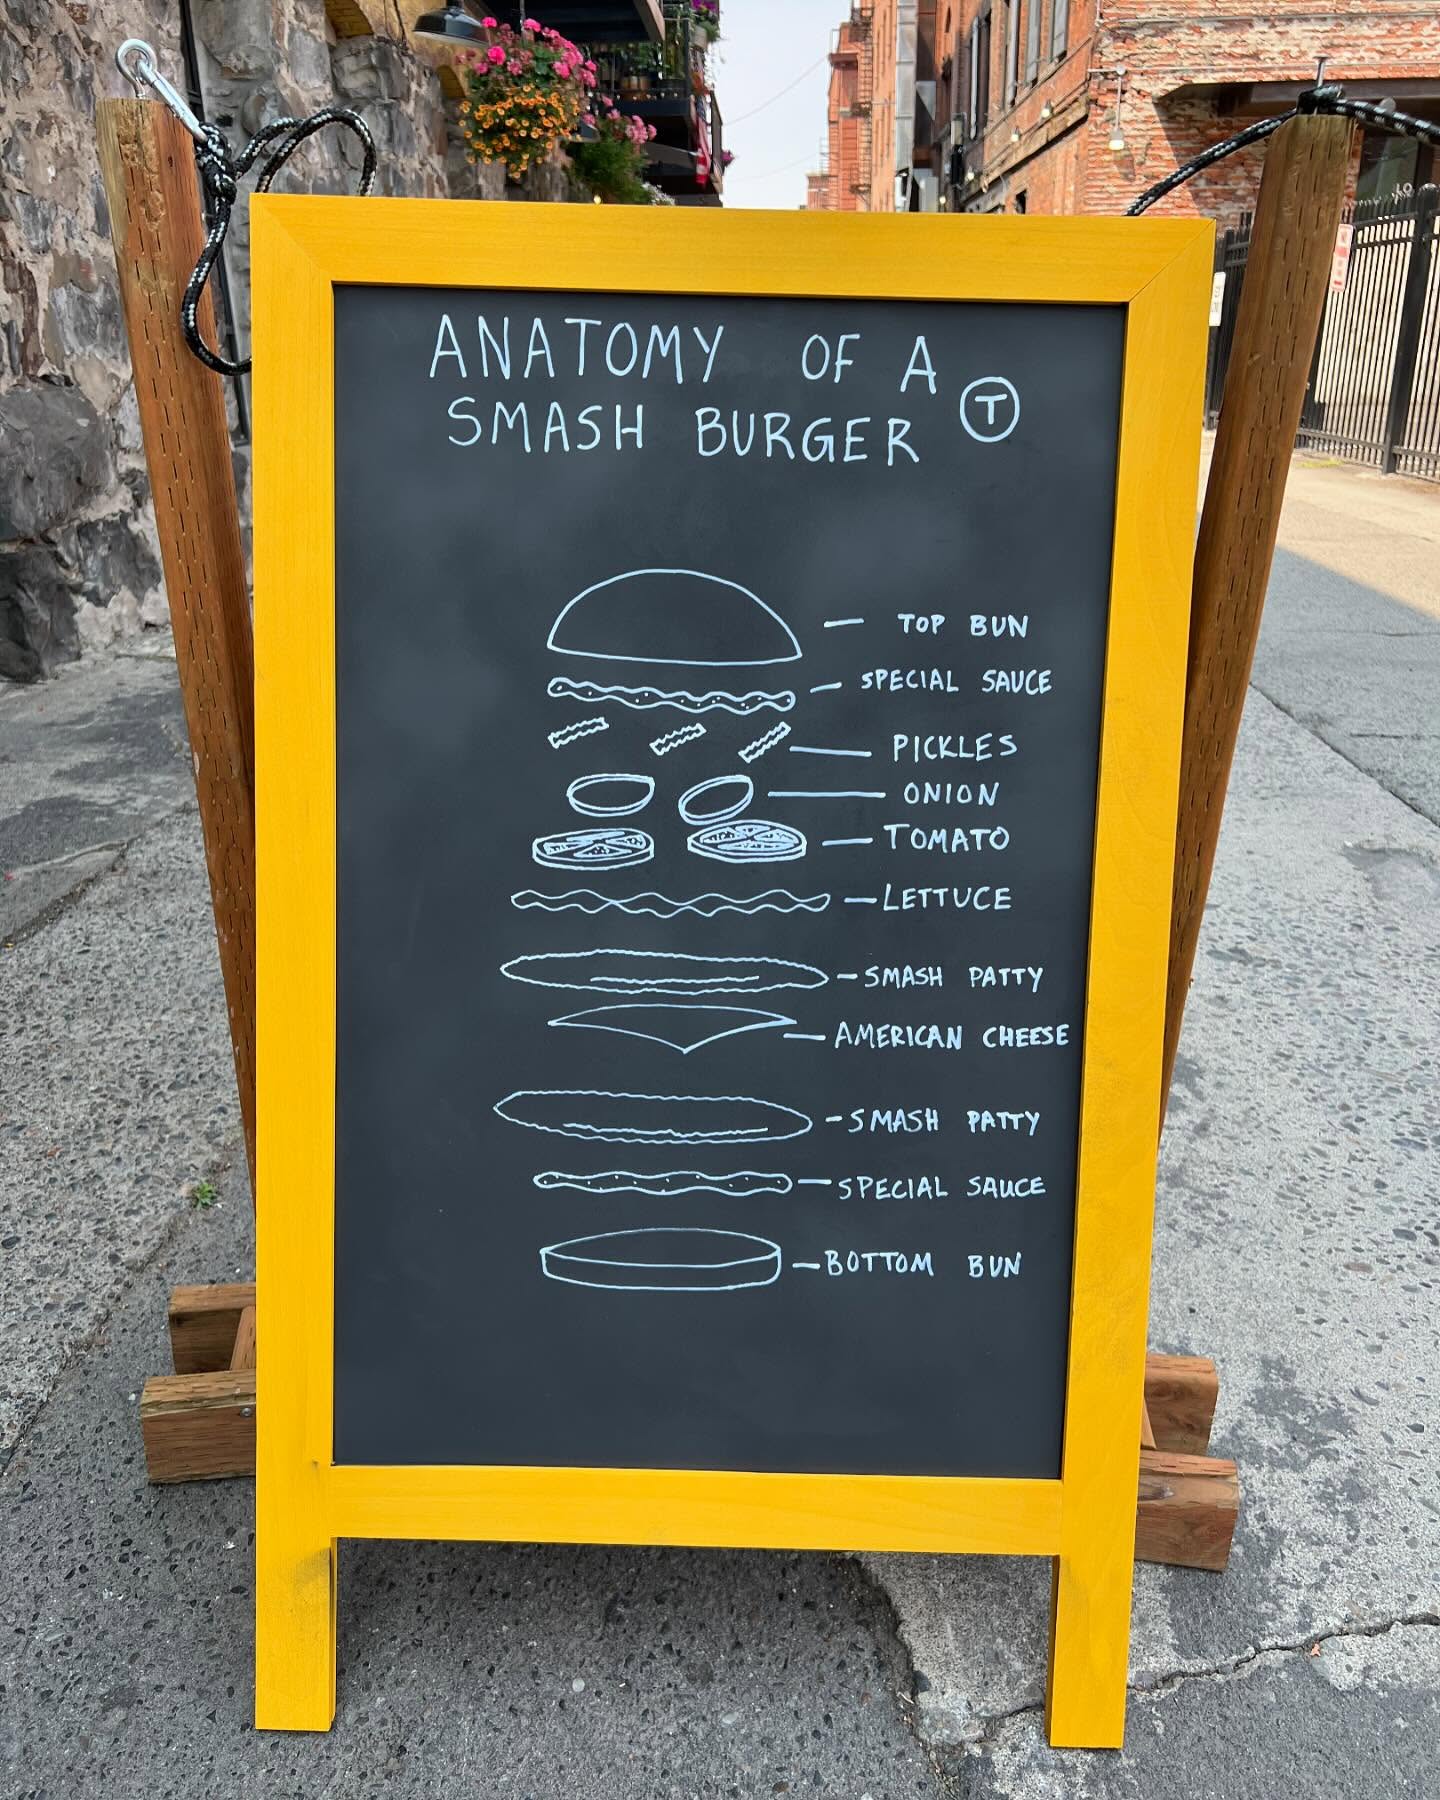 ANATOMY OF A
SMASH BURGER T
TOP BUN
SPECIAL SAUCE
PICKLES
ONION
TOMATO
LETTUCE
SMASH PATTY
AMERICAN CHEESE
SMASH PATTY
SPECIAL SAUCE
BOTTOM BUN